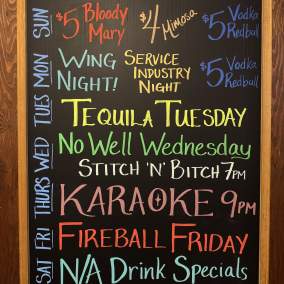 SUN $5 Bloody Mary $4 Mimosa $5 Vodka Redbull
MON Wing Night! Service Industry Night $5 Vodka Redbull
TUES Tequila Tuesday
WED No Well Wednesday
Stitch 'N' Bitch 7PM
THURS Karaoke 9PM
FRI Fireball Friday
SAT N/A Drink Specials